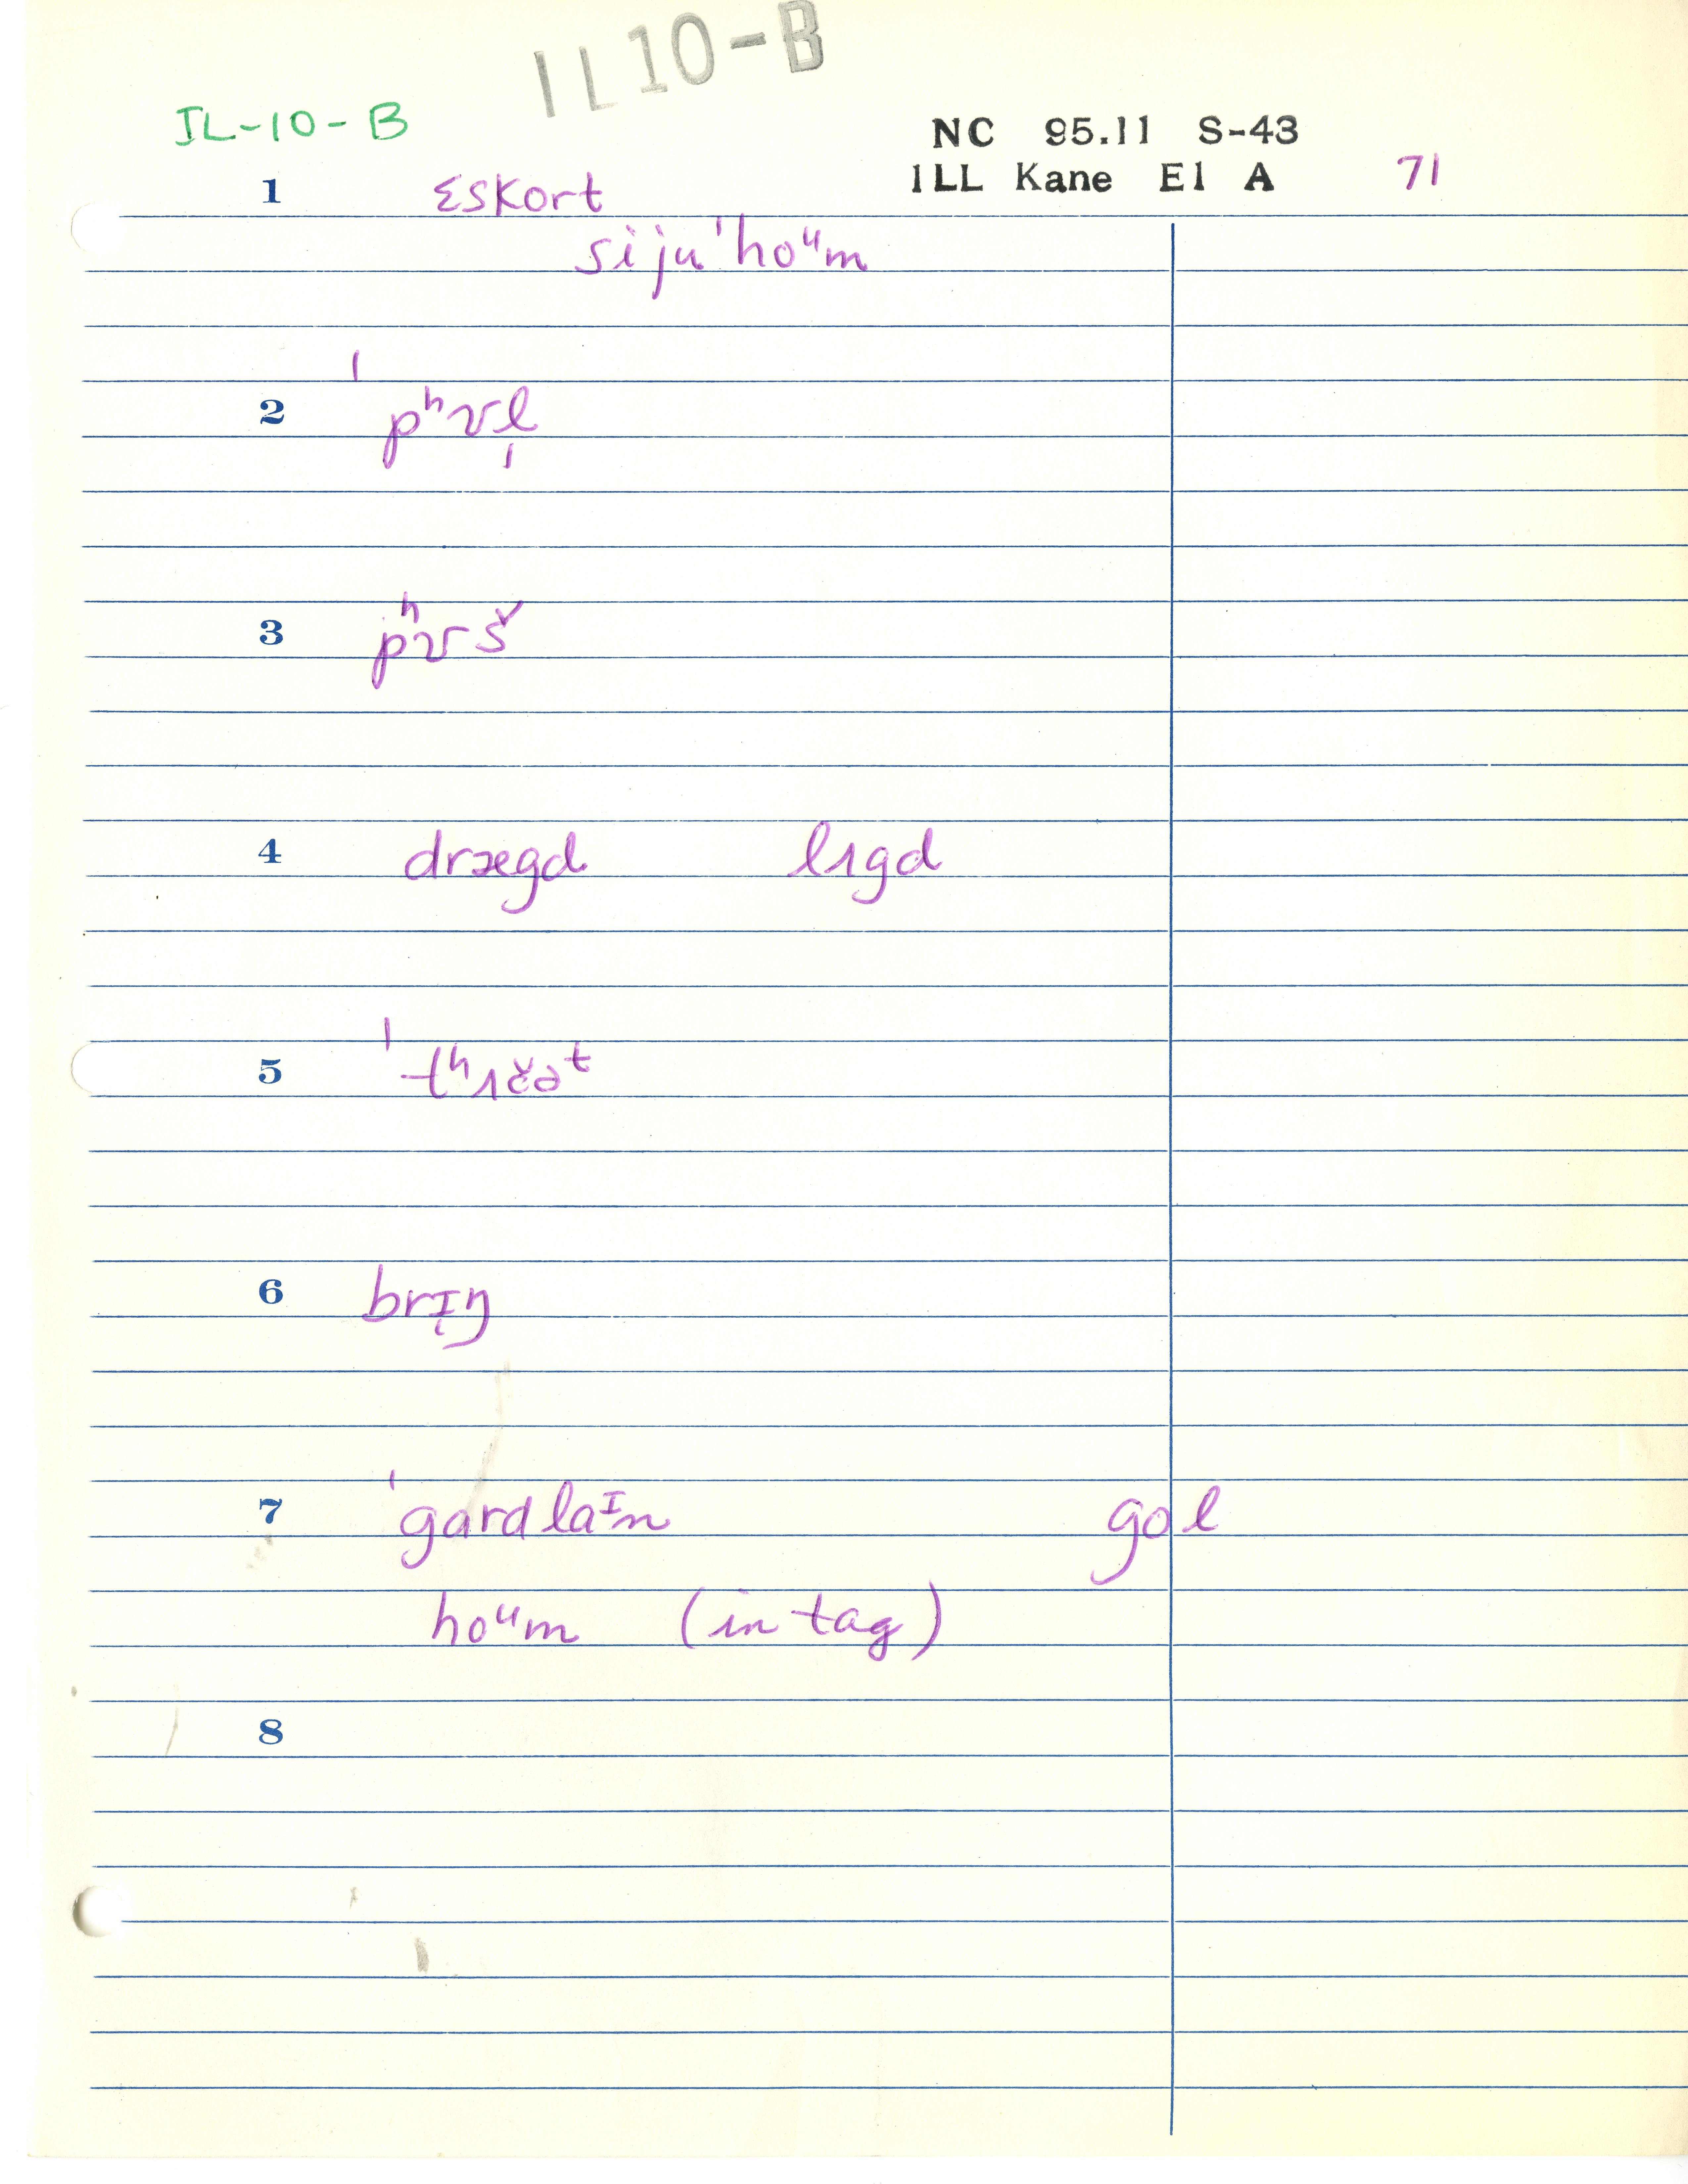 IL10-B
IL-10-B
NC 95.11 S-43
ILL Kane E1 A 71
1 ɛskort
siju ˈhoᵘm
2 ˈpʰʊl̩
3 pʰʊš
4 drægd lɪgd
5 ˈtʰɪčəᵗ
6 brɪ̨ŋ
7 ˈgardlaᴵn gol
hoᵘm (in tag)
8